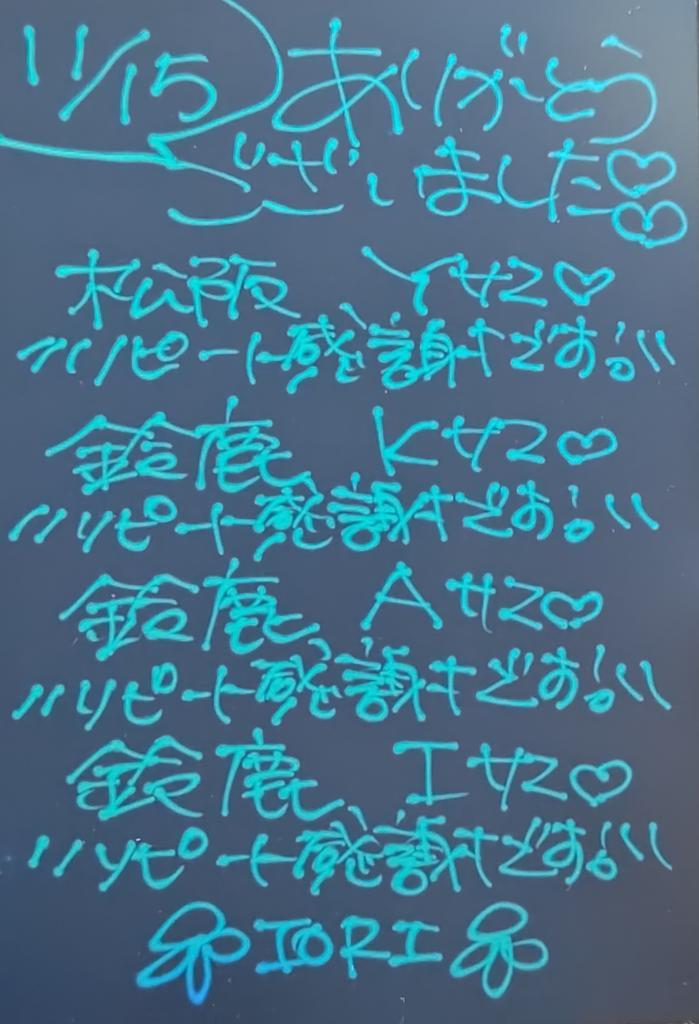 11/15 ありがとう
ございました♡♡
松阪 Yサン♡
〃リピート感謝です!!〃
鈴鹿 Kサン♡
〃リピート感謝です!!〃
鈴鹿 Aサン♡
〃リピート感謝です!!〃
鈴鹿 Iサン♡
〃リピート感謝です!!〃
IORI